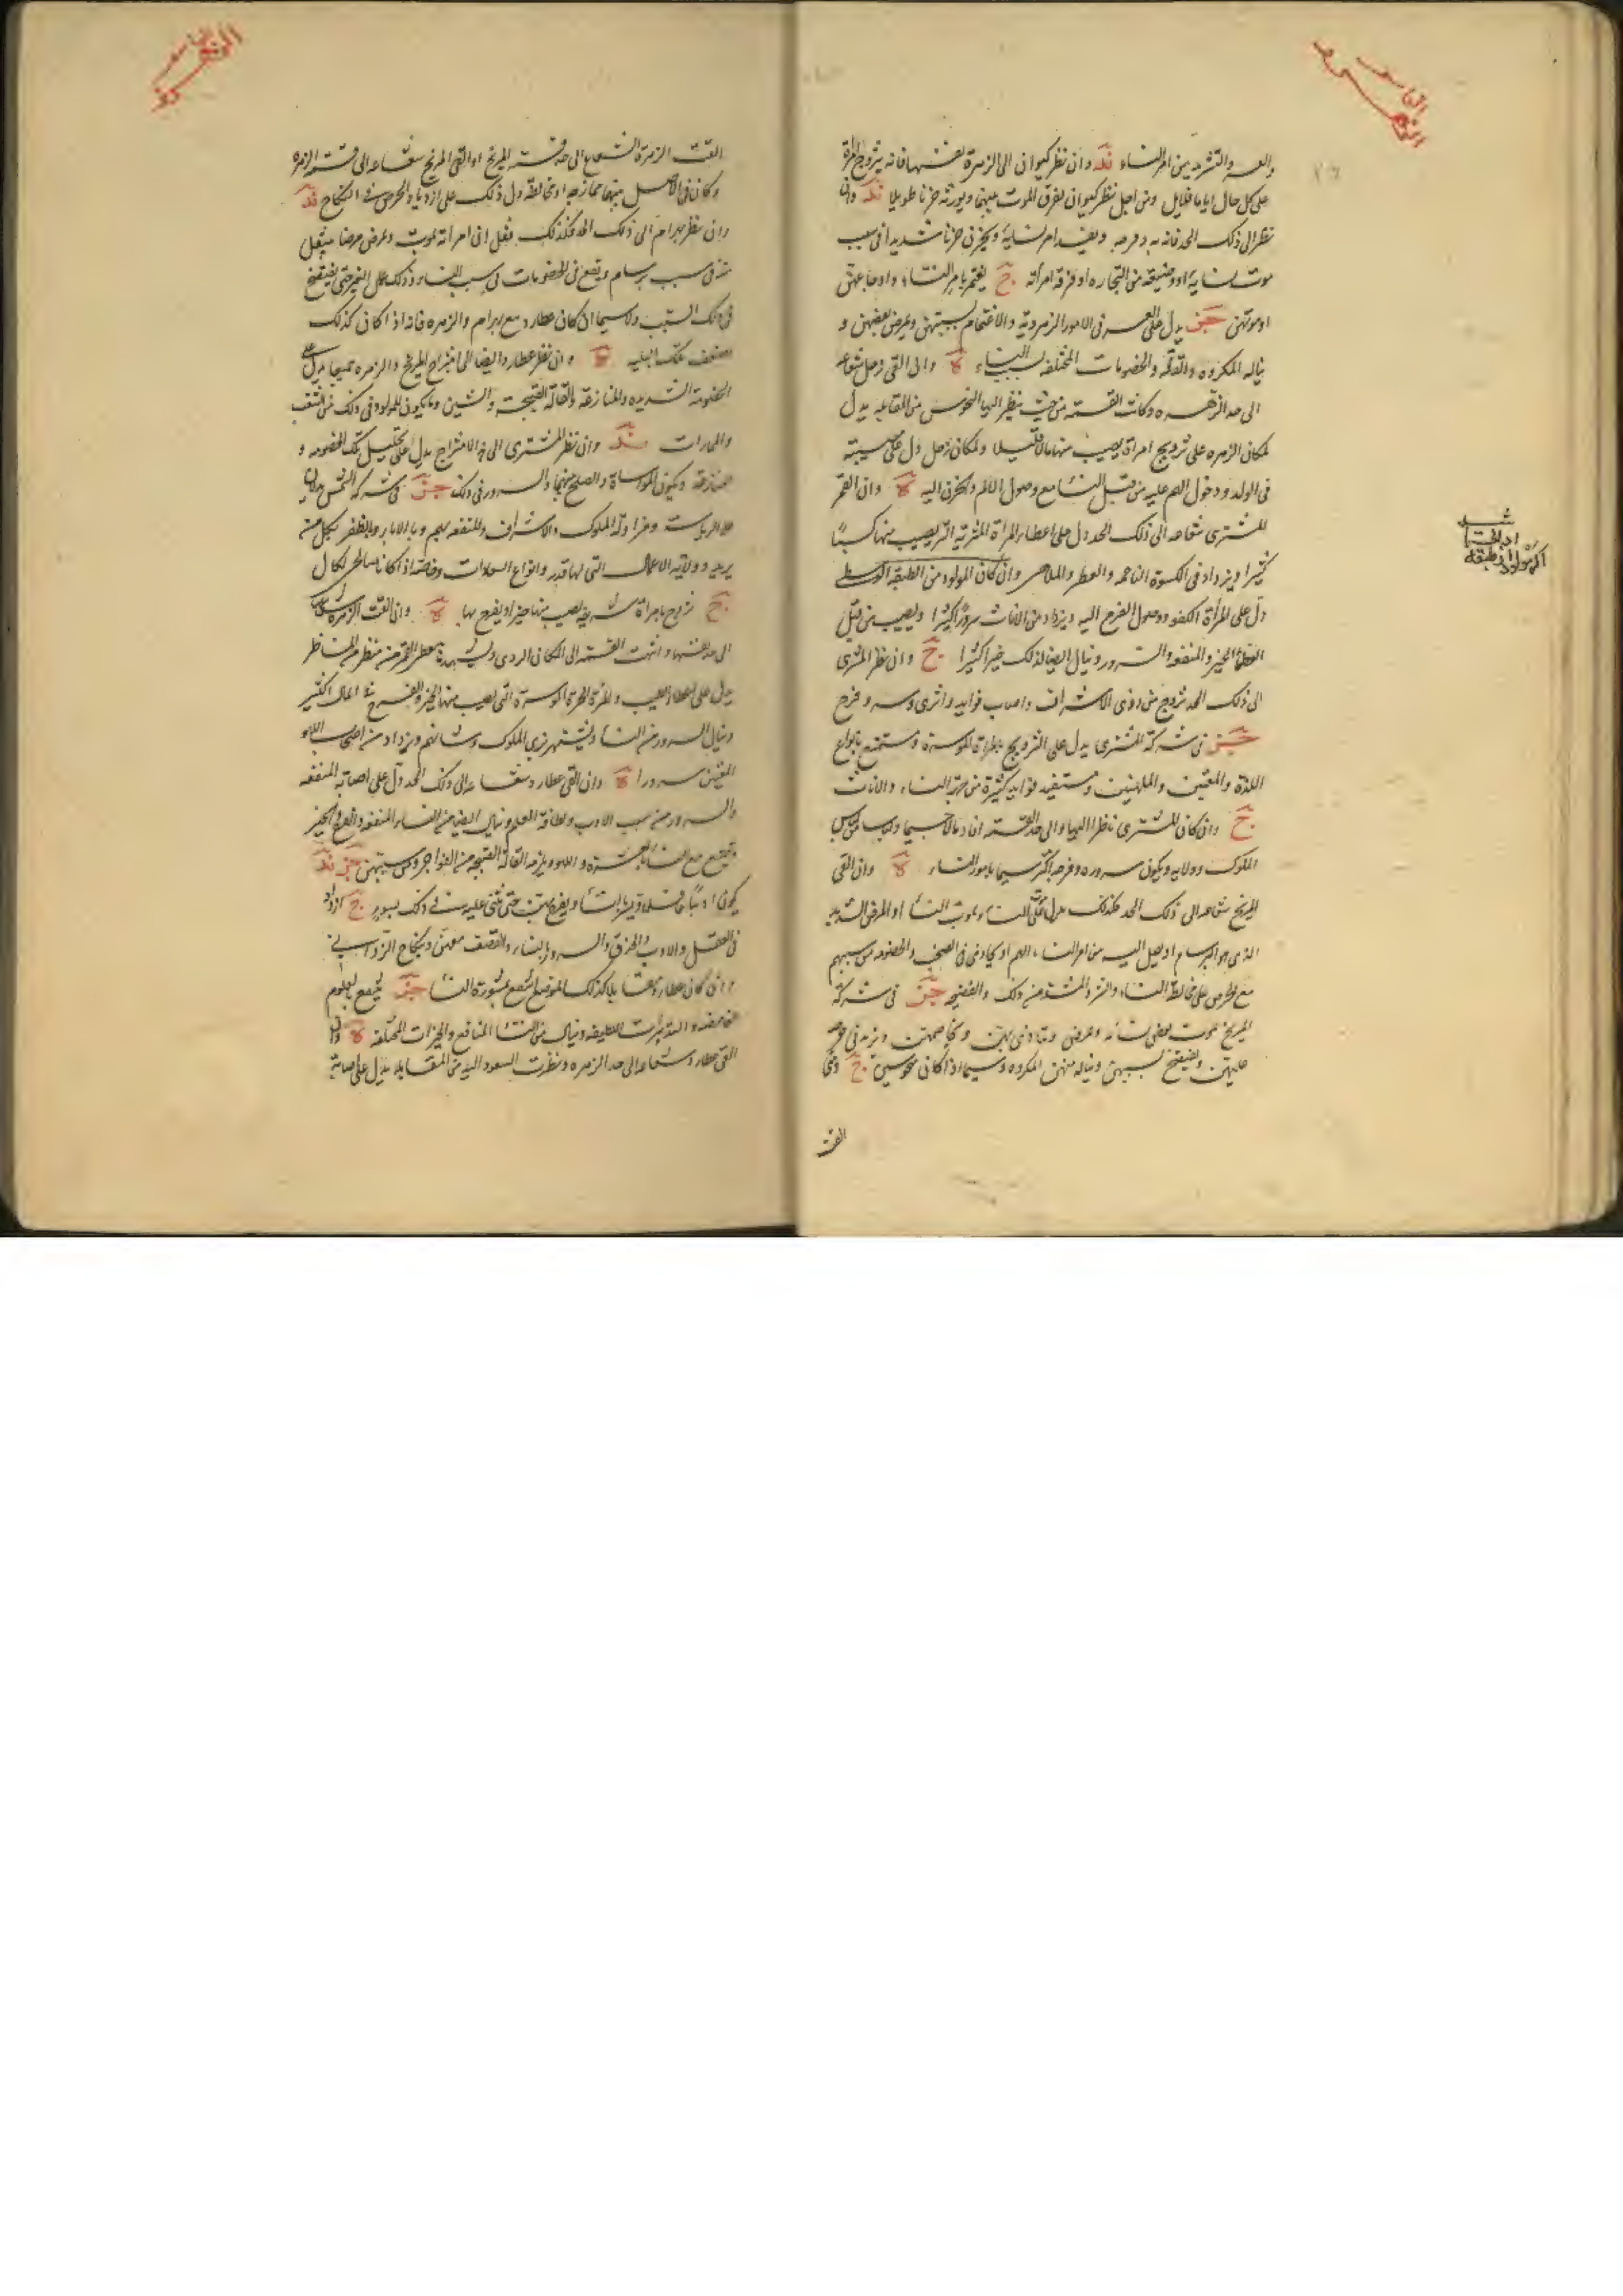 والعسر والتشديد من امر النساء وان نظر كيوان الى الزهرة نفسها فانه يتزوج امرأة
على كل حال اياما قلايل ومن اجل نظر كيوان يفرق الموت بينهما ويورثه حزنا طويلا وان
نظر الى ذلك الحد فانه ويحزن حزنا شديدا فى سبب
موت نسايه او وضيقه من التجاره او فرقة امرأته ج يغتم بامر النساء واوجاعهن
او موتهن يدل على العسر فى الامور الزهروية والاغتمام بسببهن ومرض بعضهن و
يناله المكروه والخصومات المختلفه بسبب النساء وان القى زحل شعاعه
الى حد الزهره وكانت القسمة من حيث ينظر اليها النحوس من المقابله يدل
لمكان الزهره على تزويج امرأة يصيب منها مالا قليلا ولمكان زحل دل على مصيبته
فى الولد ودخول الهم عليه من قبل النسا مع وصول الالم والحزن اليه وان القى
المشترى شعاعه الى ذلك الحد دل على اعطاء المرأة المثرية التى يصيب منها كسبا
كثيرا ويزداد فى الكسوة الناعمه والعطر والملاحى وان كان المولود من الطبقه الوسطى
دل على المرأة الكفو ووصول الفرح اليه ويزداد من الاناث سرورا كثيرا ويصيب من قبل
العظما الخير والمنفعه والسرور وينال ايضا لذلك خيرا كثيرا ج وان نظر المشترى
الى ذلك الحد تزوج من ذوى الاشراف واصاب فوايد واثرى وسر وفرح
فى شركة المشترى يدل على التزويج بامرأة موسرة ويستمتع بانواع
اللذة والمغنين والملهيين ويستفيد فوايد كثيرة من جهة النساء والاناث
ج وان كان المشترى ناظرا اليها والى حد القسمة افاد مالا جسيما ولباسا كلباس
الملوك وولايه ويكون سروره وفرحه اكثر سيما بامور النساء وان القى
المريخ شعاعه الى ذلك الحد فكذلك يدل على النساء وموت النسا او المرض الشديد
الذى هو البرسام او يصل اليه من امر النساء الهم او والخصومه من سببهم
مع الحرص على مخالطة النساء من ذلك والفضيحه فى شركة
المريخ موت بعض نسائه ومرض وتأذى بهن وتخاصمهن ويزيد فى حرصه
عليهن ويفتضح بسببهن ويناله منهن المكروه وسيما اذا كانى منحوسين ج ومتى
القت
القت الزهرة الشعاع الى حد قسمة المريخ او القى المريخ شعاعه الى قسمة الزهره
وكان فى الاصل بينهما ممازجه او مخالطة دل ذلك على ازدياد الحرص فى النكاح
وان نظر بهرام الى ذلك الحد فكذلك يفعل ان امرأته تموت ويمرض مرضا
سبب برسام ويقع فى الخصومات فى سبب النساء حتى يفتضح
فى ذلك السبب ولاسيما ان كان عطارد مع بهرام والزهره فانه اذا كان كذلك
تضعف تلك البليه وان نظر عطارد ايضا الى امتزاج المريخ والزهره جميعا يدل على
الخصومة الشديده والمنازعة والقالة القبيحة والشين وما يكون للمولود فى ذلك من الشغب
والمارات وان نظر المشترى الى هذا الامتزاج يدل على تحليل تلك الخصومه و
المنازعة ويكون المواساة والصلح بينهما والسرور فى ذلك فى شركة الشمس يدل على
الرياسة ومزاولة الملوك والاشراف والمنفعه بهم وبالاباء وبالظفر بكل من
يريد وولاية الاعمال التى لها قدر وانواع السعادات وخاصة اذا كانا صالحى الحال
ج تزوج بامرأة شريفه يصيب منها خيرا ويفرح بها وان القت الزهره شعاعها
الى حد نفسها وانتهت القسمه الى المكان الردى
يدل على المرأة الحرة الموسرة التى يصيب منها الخير والفرح المال الكثير
وينال السرور من النساء ويتشهر بزى الملوك ويزداد من اصحاب اللهو
المغنين سرورا وان القى عطارد شعاعه الى ذلك الحد دل على اصابة المنفعه
والسرور من سبب الادب ولطافة العلم وينال ايضا من النساء المنفعه والفرح والخير
ويتمتع مع النساء بالعشرة واللهو ويلزمه القالة القبيحه من الفواجر وبسببهن
يكون اديبا حتى يثنى عليه فى ذلك بسرور ج ازداد
فى العقل والادب والحذق والسرور بالنساء والقصف معهن
وان كان عطارد مقابلا كذلك الموضع انتفع بمشورة النسا ينتفع بالعلوم
الغامضه والتدبيرات اللطيفه وينال من النسا المنافع والخيرات المختلفه وان
القى عطارد شعاعه الى حد الزهره ونظرت السعود اليه من المقابله يدل على اصابة